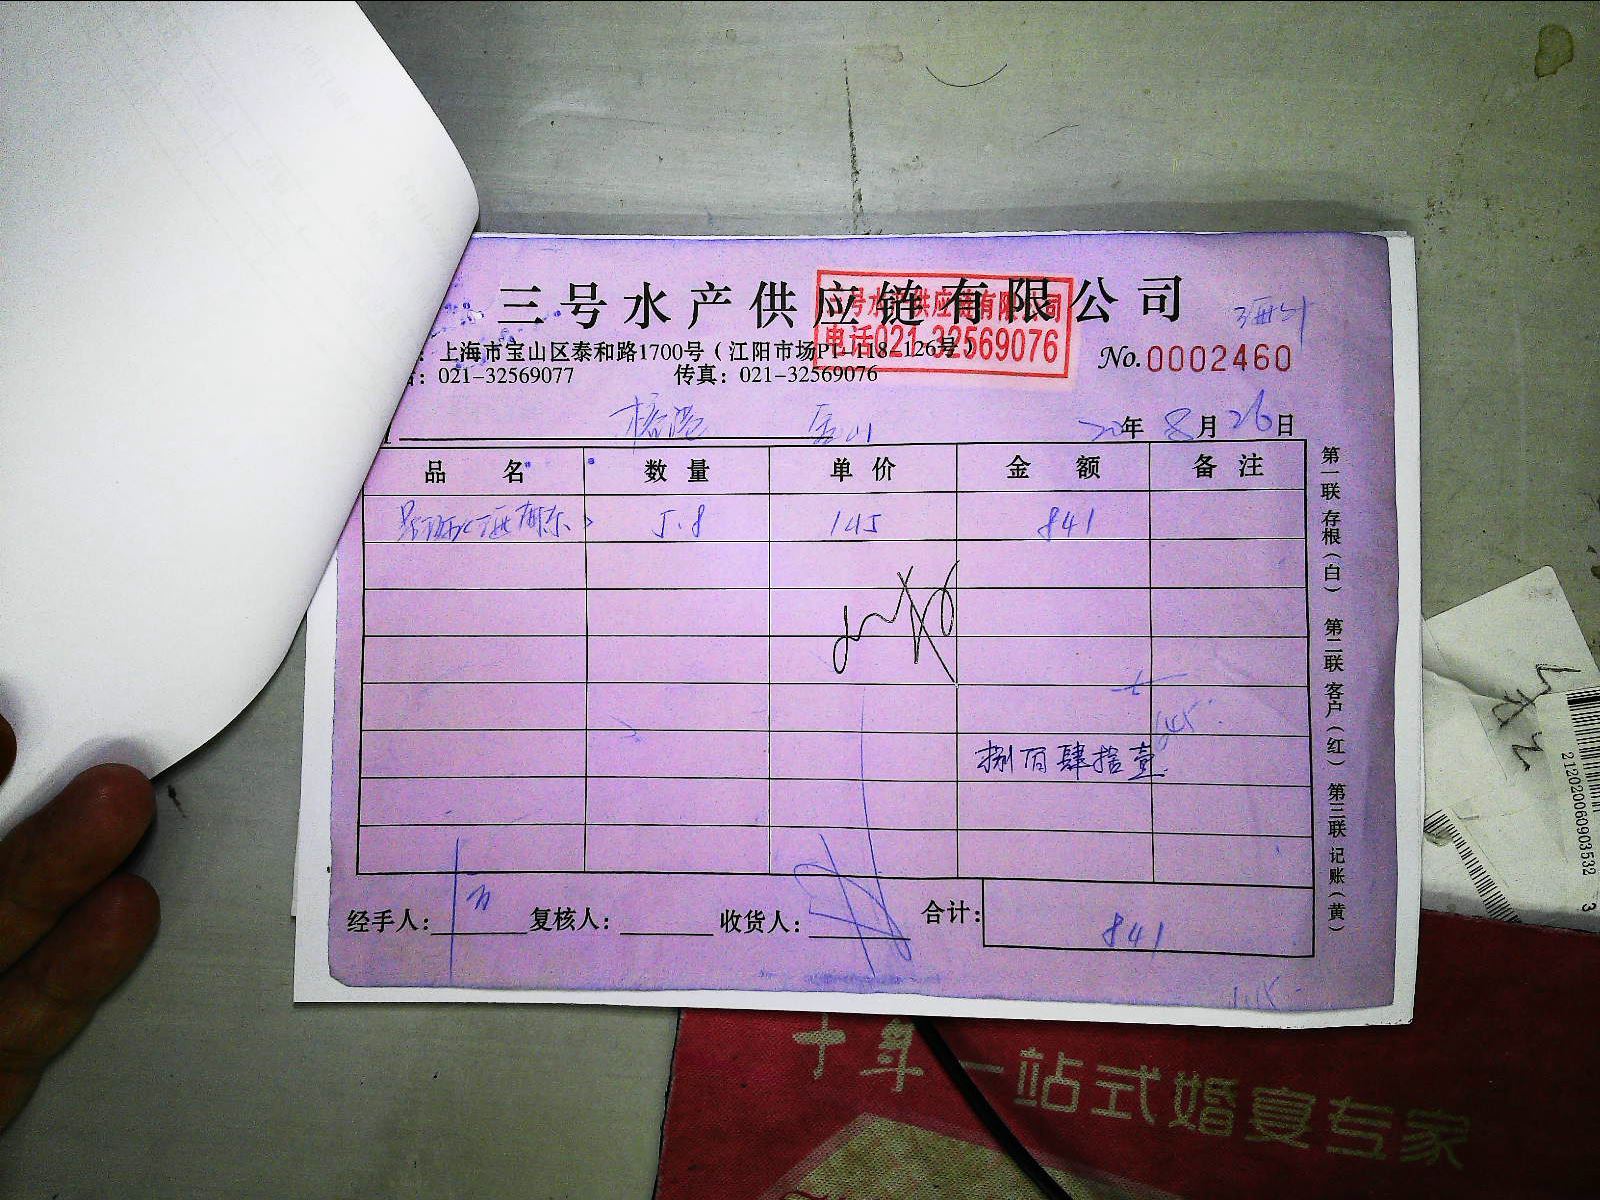 三号水产供应链有限公司
三号水产供应链有限公司
电话021-32569076
：上海市宝山区泰和路1700号（江阳市场P1-118-126号）
：021-32569077 传真：021-32569076
No.0002460
20年 8月26日
品名 数量 单价 金额 备注
5.8 145 841
捌佰肆拾壹
经手人： 复核人： 收货人： 合计：841
第一联 存根（白） 第二联 客户（红） 第三联 记账（黄）
1.15
212020060903532 3
十年一站式婚宴专家